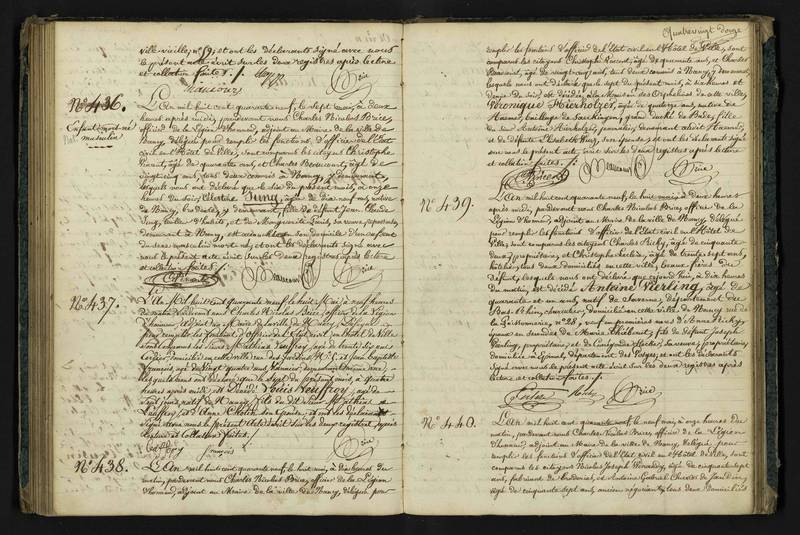 ville vieille, n° 59, et ont les déclarants signé avec nous
le présent acte écrit sur les deux registres après lecture
et collation faites. /.
Brice
N° 436.
Enfant mort-né
masculin
L'An mil huit cent quarante neuf, le sept mai, à deux
heures après midi, pardevant nous Charles Nicolas Brice,
officier de la Légion d'honneur, adjoint au Maire de la ville de
Nancy, délégué pour remplir les fonctions d'officier de l'Etat
civil en l'Hôtel de Ville, sont comparus les citoyens Christophe
âgé de quarante ans, et Charles Beaucourt, âgé de
vingt cinq ans, tous deux commis à Nancy, y demeurant,
lesquels nous ont déclaré que le six du présent mois, à onze
heures du soir, Catherine Jung, âgée de dix neuf ans, native
de Nancy, brodeuse, y demeurant, fille de défunt Jean Claude
Jung, et de Marguerite sa veuve,
domiciliée à Nancy, est accouchée en son domicile d'un enfant
du sexe masculin mort né, et ont les déclarants signé avec
nous le présent acte écrit sur les deux registres après lecture
et collation faites. /.
Beaucourt Brice
N° 437.
L'An Mil huit cent quarante neuf, le huit Mai, à neuf heures
du matin, pardevant nous Charles Nicolas Brice, officier de la Légion
d'honneur, adjoint au Maire de la ville de Nancy, délégué
pour remplir les fonctions d'officier de l'Etat civil en l'Hôtel de Ville
sont comparus les sieurs Mathieu Lauffroy, âgé de trente six ans
domicilié en cette ville rue des Jardins, N° 5, et Jean Baptiste
François, âgé de vingt quatre ans,
lesquels nous ont déclaré que le sept du présent mois, à quatre
heures après midi, est décédé Louis Lauffroy, âgé de
sept jours, natif de Nancy, fils de dit Sieur Mathieu
Lauffroy, et d'Anne son épouse, et ont les déclarants
signé avec nous le présent acte écrit sur les deux registres, après
lecture et collation faites. /.
François Brice
N° 438.
L'An mil huit cent quarante neuf le huit mai, à dix heures du
matin, pardevant nous Charles Nicolas Brice, officier de la Légion
d'honneur, adjoint au Maire de la ville de Nancy, délégué pour
Quatrevingt douze
remplir les fonctions d'officier de l'Etat civil en l'Hôtel de Ville, sont
comparus les citoyens Christophe âgé de quarante ans, et Charles
Beaucourt, âgé de vingt cinq ans, tous deux commis à Nancy, y demeurant,
lesquels nous ont déclaré que le sept du présent mois, à six heures et
demie du soir, est décédée, à la Maison des Orphelines de cette ville,
Véronique Hierholzer, âgée de quatorze ans, native de
Hauner, bailliage de Saeckingen, grand duché de Bade, fille
du sieur Antoine Hierholzer, journalier, demeurant audit Hauner,
et de défunte Elisabeth son épouse, et ont les déclarants signé
avec nous le présent acte écrit sur les deux registres après lecture
et collation faites. /.
Beaucourt Brice
N° 439.
L'An mil huit cent quarante neuf, le huit mai, à deux heures
après midi, pardevant nous Charles Nicolas Brice, officier de la
Légion d'honneur, adjoint au Maire de la ville de Nancy, délégué
pour remplir les fonctions d'officier de l'Etat civil en l'Hôtel de
Ville, sont comparus les citoyens Charles âgé de cinquante
ans, propriétaire, et Christophe âgé de trente sept ans,
hôtelier, tous deux domiciliés en cette ville, beaux frères du
défunt, lesquels nous ont déclaré que cejourd'hui, à dix heures
du matin, est décédé Antoine Vierling, âgé de
quarante et un ans, natif de Saverne, département du
Bas-Rhin, charcutier, domicilié en cette ville de Nancy rue de
la Poissonnerie, n° 28, veuf en premières noces d'Anne
époux en secondes de Marie Thiébaut, fils de défunt Joseph
Vierling, propriétaire, et de Cunégonde sa veuve, propriétaire,
domiciliée à Epinal, département des Vosges, et ont les déclarants
signé avec nous le présent acte écrit sur les deux registres après
lecture et collation faites. /.
Brice
N° 440.
L'An mil huit cent quarante neuf, le neuf mai, à onze heures du
matin, pardevant nous Charles Nicolas Brice, officier de la Légion
d'honneur, adjoint au Maire de la ville de Nancy, délégué pour
remplir les fonctions d'officier de l'Etat civil en l'Hôtel de Ville, sont
comparus les citoyens Nicolas Joseph âgé de cinquante sept
ans, fabricant de broderies, et Antoine Gabriel
âgé de cinquante sept ans, ancien négociant, tous deux domiciliés